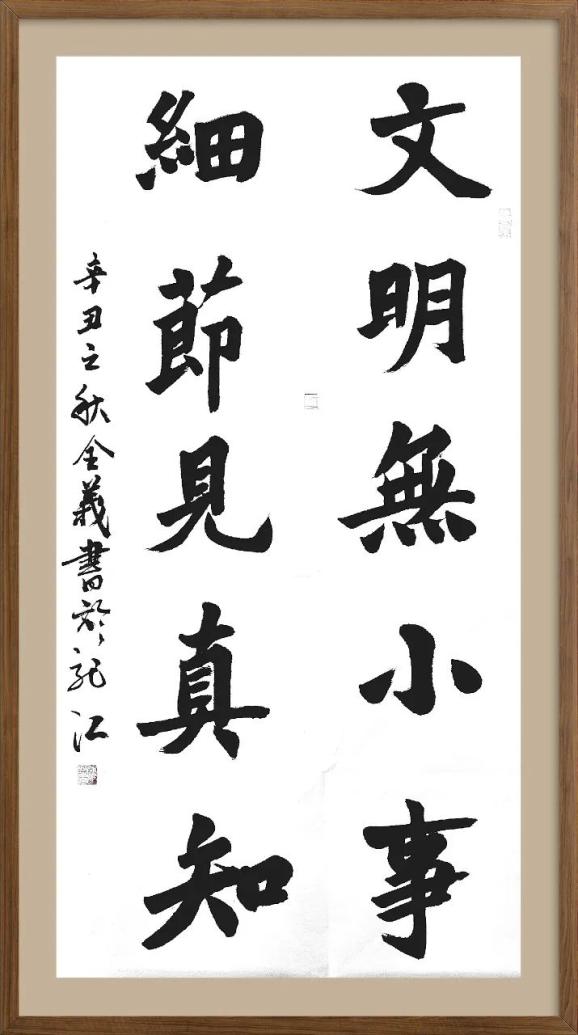 文明無小事
細節見真知
辛丑之秋全義書於龍江